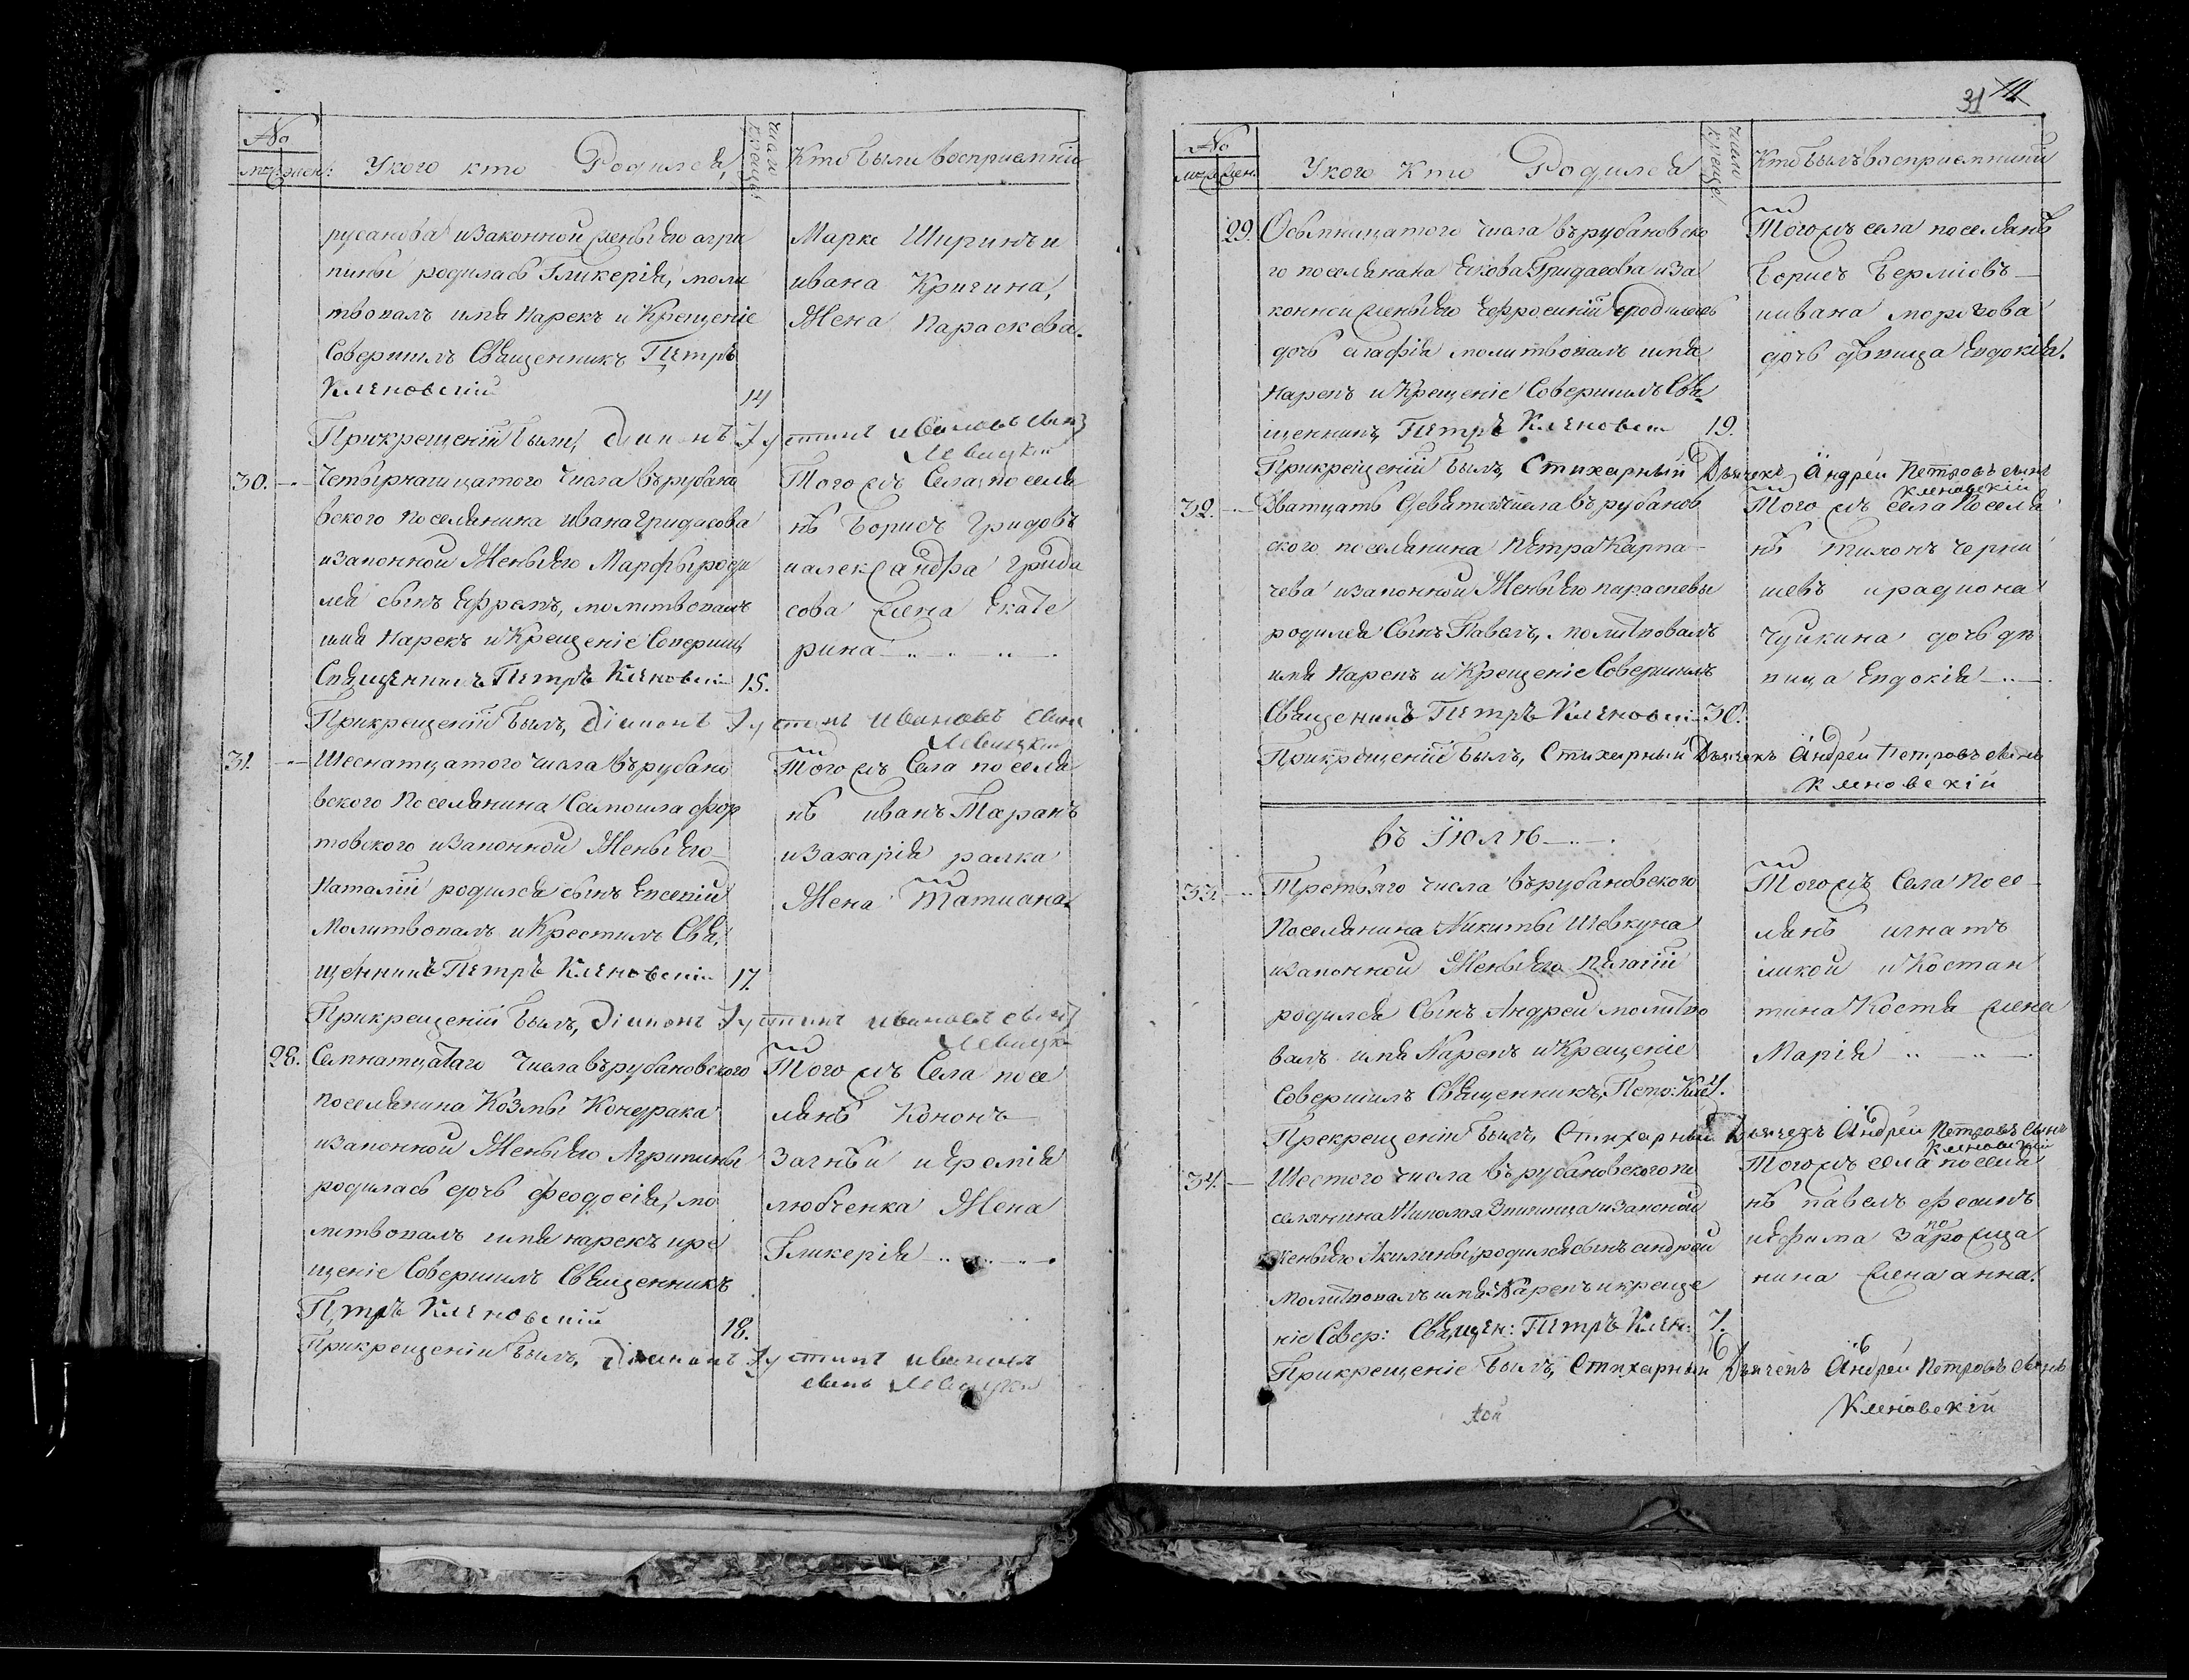 No
муж: жен:
У кого кто Родился,
числа крещен:
Кто были восприемники
русанова и законной жены его агри
пины родилась Гликерія, моли
твовалъ имя Нарекъ и Крещеніе
Совершилъ Священникъ Петръ
Кляновскій
14
Марке Ширинъ и
ивана Кричина,
Жена Параскева.
При крещеніи былъ, Діяконъ Іустинъ ивановъ сынъ
Левицкій
30.
Четырнатцатого Числа въ рубано
вского поселянина ивана Гридасова
и законной Жены его Марфы роди
лся сынъ Ефремъ, молитвовалъ
имя Нарекъ и Крещеніе Соверши
Священникъ Петръ Кляновскій
15.
Того жъ Села, поселя
нъ Борисъ Гридовъ
и александра Грида
сова жена Екате
рина
При крещеніи былъ, Діяконъ Іустинъ ивановъ сынъ
Левицкій
31.
Шеснатцатого числа въ рубано
вского Поселянина Самоила фор
товского и законной Жены его
Наталіи родился сынъ Евсевій
Молитвовалъ и Крестилъ Свя
щенникъ Петръ Кляновскій
17.
Того жъ Села поселя
нъ иванъ Таранъ
и захарія ралка
Жена Татиана.
При крещеніи былъ, Діяконъ Іустинъ ивановъ сынъ
Левицкій
28.
Семнатцатаго Числа въ рубановского
поселянина Козмы Кондрака
и законной Жены его Агрипины
родилась дочь феодосія, мо
литвовалъ имя нарекъ и кре
щеніе Совершилъ Священникъ
Петръ Кляновскій
18.
Того жъ Села посе
лянъ Кононъ
Загный и Еремія
любченка Жена
Гликерія
При крещеніи былъ, Діяконъ Іустинъ ивановъ
сынъ Левицкій
31
No
муж: жен:
У кого кто Родился
числа крещен:
Кто былъ восприемники
29.
Осьмнацатого числа въ рубановско
го поселянана Якова Гридасова и за
конной жены его Ефросиніи родилась
дочь агафія молитвовалъ имя
Нарекъ и Крещеніе Совершилъ Свя
щенникъ, Петръ Кляновскій
19.
Того жъ села поселянъ
Борисъ Берліовъ
и ивана моргова
дочь двица Евдокія.
При крещеніи былъ, Стихарный Дьячекъ Андрей Петровъ сынъ
Кляновскій
32.
Дватцать Девятогочисла въ рубанов
ского поселянина Петра Карпа
чева и законной Жены его параскевы
родился Сынъ Павелъ, молитвовалъ
имя Нарекъ и Крещеніе Совершилъ
Священникъ Петръ Кляновскій
30.
Того жъ села Поселя
нъ тихонъ черни
шевъ и радиона
Чуйкина дочь дѣ
вица Евдокія
При крещеніи былъ, Стихарный Дьячекъ Андрей Петровъ сынъ
Кляновскій
въ Іюлѣ
33.
Третьяго числа въ рубановского
Поселянина Никиты Шевкуна
и законной Жены его Пелагіи
родился Сынъ Андрей молитво
валъ имя Нарекъ и Крещеніе
Совершилъ Священникъ, Петр: Кля
4.
Того жъ Села Посе
лянъ игнатъ
ликой и Костан
тина Костя жена
Марія
Пре крещеніи былъ, Стихарный Дьячекъ Андрей Петровъ сынъ
Кляновскій
34.
Шестого числа въ рубановского по
селянина Николая Зинчинца и законой
жены его Акилины родился сынъ андрей
молитвовалъ имя Нарекъ и креще
ніе Совер: Священ: Петръ Клян:
7.
Того жъ села поселя
нъ павелъ фесинъ
и ефима запорожца
нина жена анна.
При крещеніе былъ, Стихарный Дьячекъ Андрей Петровъ сынъ
Кляновскій